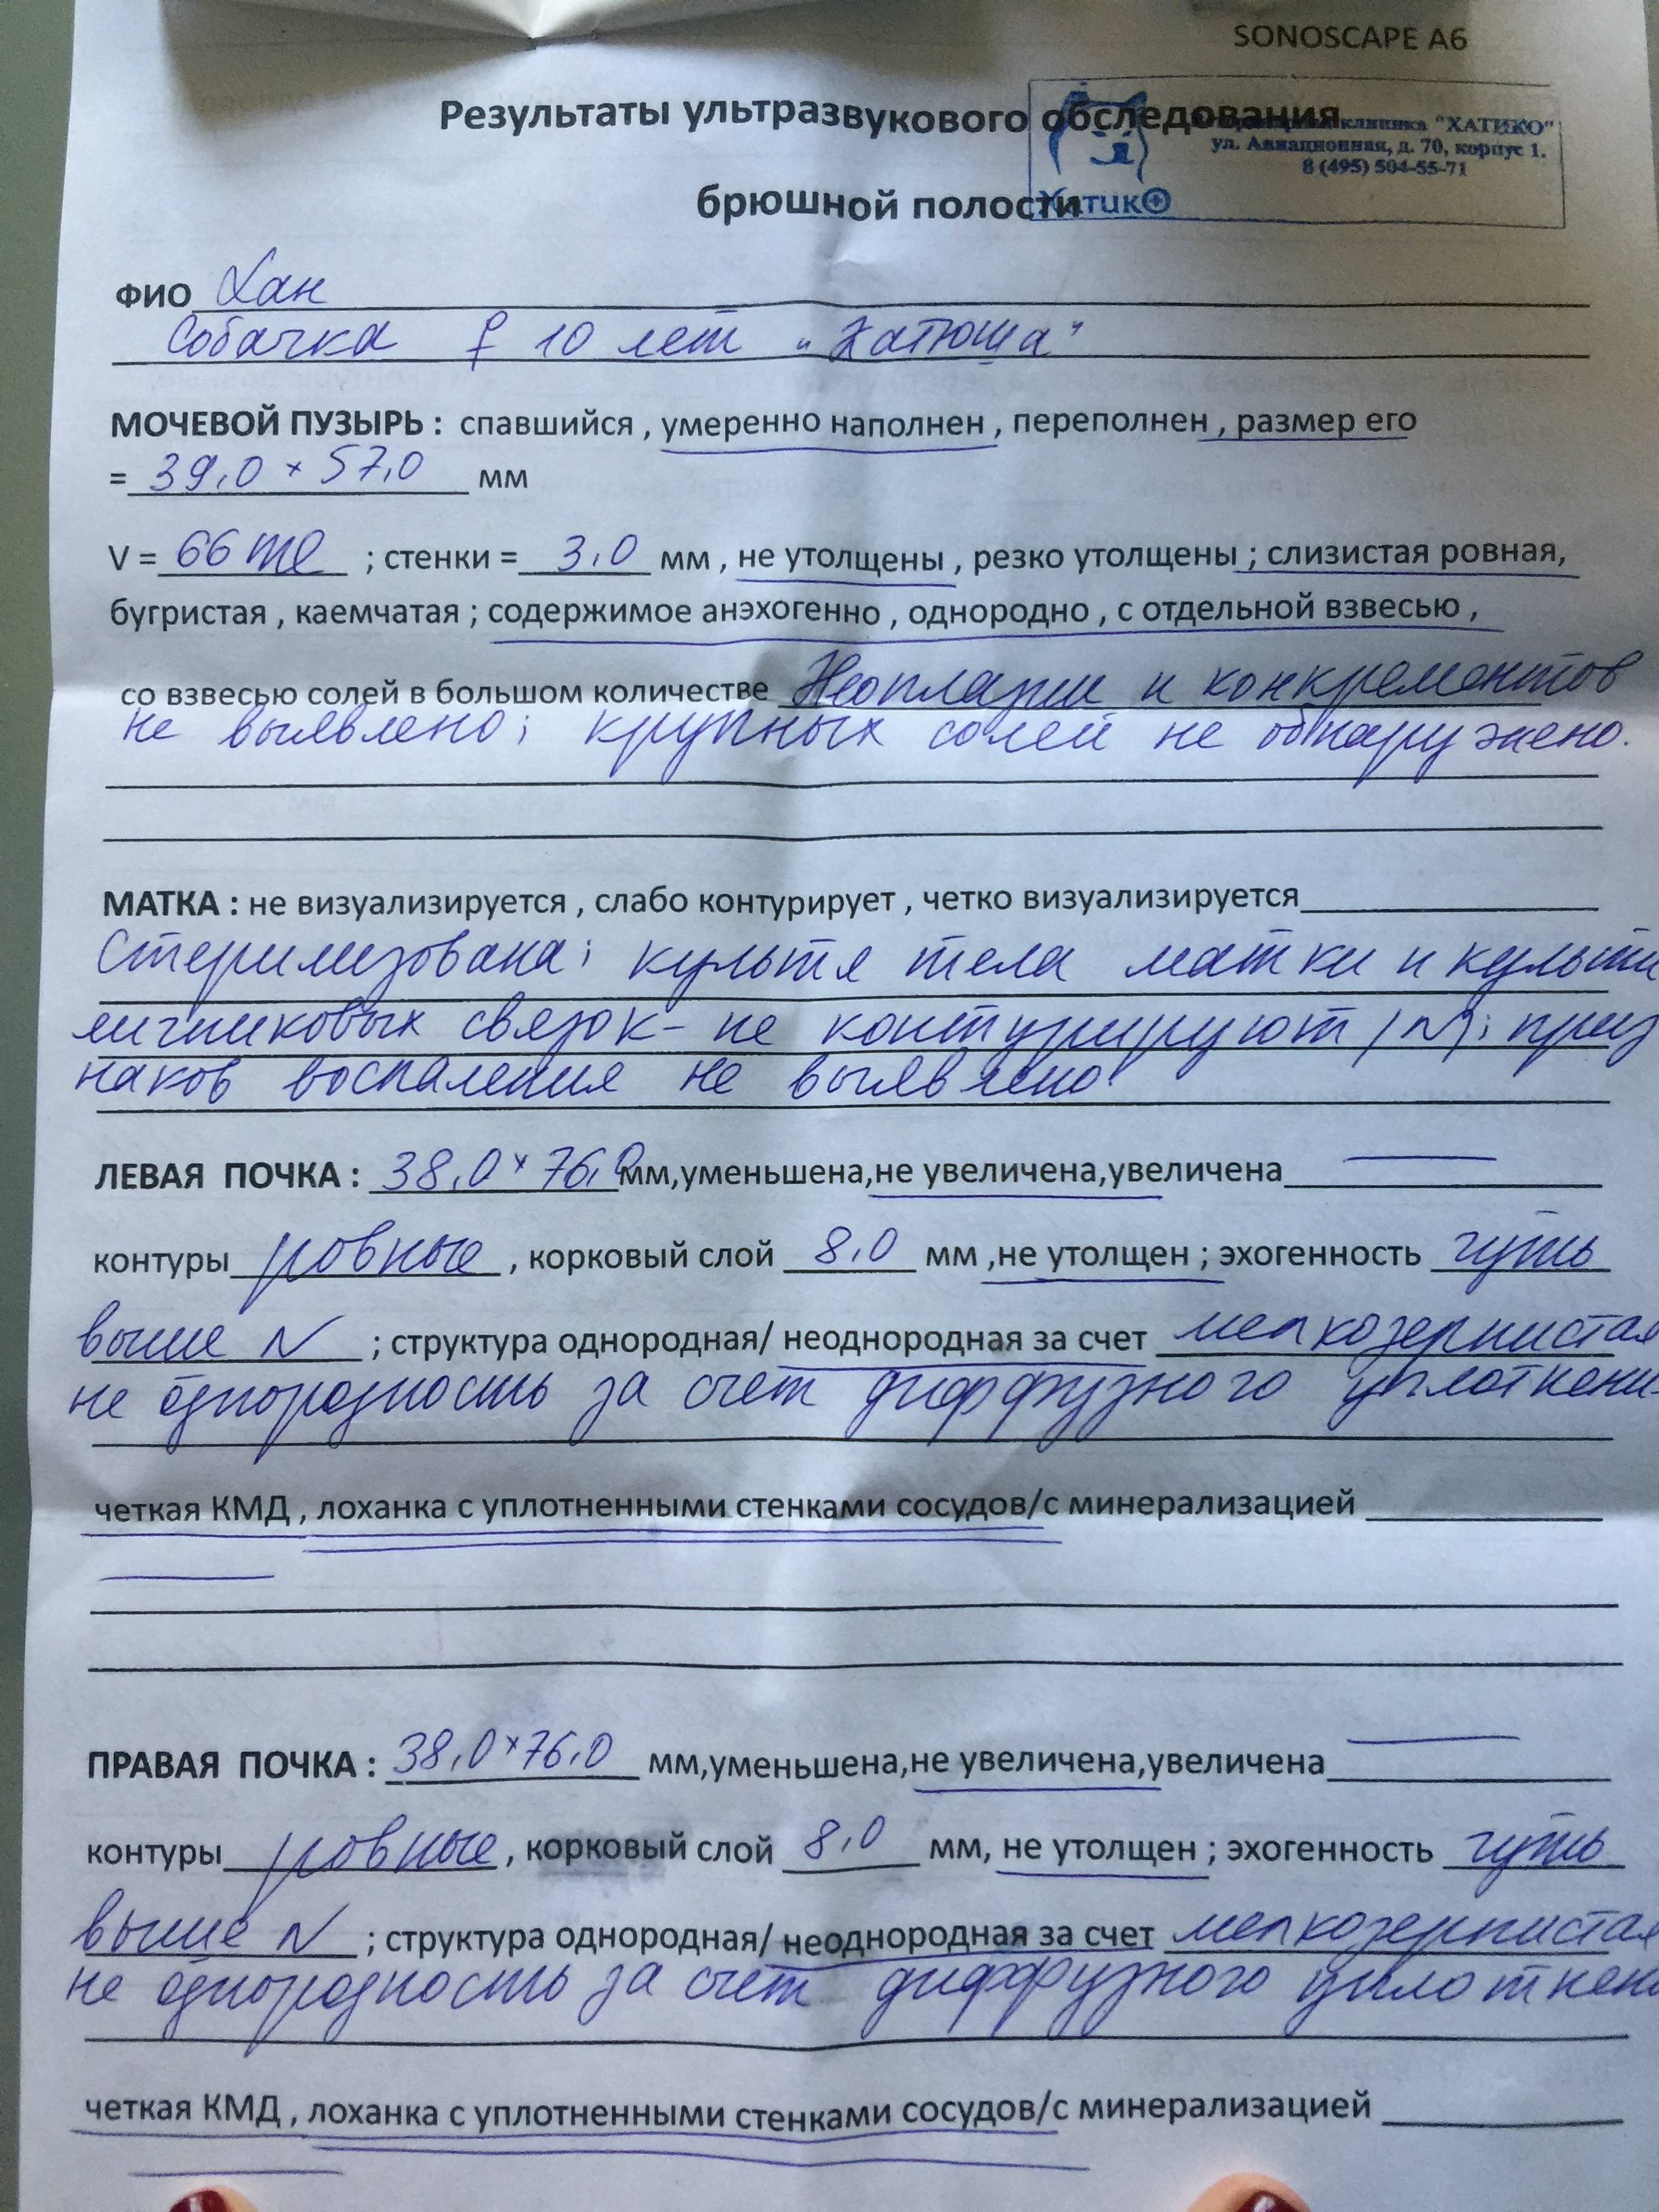 SONOSCAPE A6
Результаты ультразвукового обследования
клиника "ХАТИКО"
ул. Авиационная, д. 70, корпус 1.
8 (495) 504-55-71
брюшной полости
Хатико
ФИО Хан
Собачка ♀ 10 лет „Катюша"
МОЧЕВОЙ ПУЗЫРЬ : спавшийся , умеренно наполнен , переполнен , размер его
= 39,0 × 57,0 мм
V = 66 ml ; стенки = 3,0 мм , не утолщены , резко утолщены ; слизистая ровная,
бугристая , каемчатая ; содержимое анэхогенно , однородно , с отдельной взвесью ,
со взвесью солей в большом количестве Неоплазии и конкрементов
не выявлено; крупных солей не обнаружено.
МАТКА : не визуализируется , слабо контурирует , четко визуализируется
Стерилизована; культя тела матки и культи
яичниковых связок - не контурируют /N/; приз
наков воспаления не выявлено
ЛЕВАЯ ПОЧКА : 38,0 × 76,0 мм,уменьшена,не увеличена,увеличена
контуры ровные , корковый слой 8,0 мм ,не утолщен ; эхогенность чуть
выше N ; структура однородная/ неоднородная за счет мелкозернистая
не однородность за счет диффузного уплотнени
четкая КМД , лоханка с уплотненными стенками сосудов/с минерализацией
ПРАВАЯ ПОЧКА : 38,0 × 76,0 мм,уменьшена,не увеличена,увеличена
контуры ровные , корковый слой 8,0 мм, не утолщен ; эхогенность чуть
выше N ; структура однородная/ неоднородная за счет мелкозернистая
не однородность за счет диффузного уплотнени
четкая КМД , лоханка с уплотненными стенками сосудов/с минерализацией